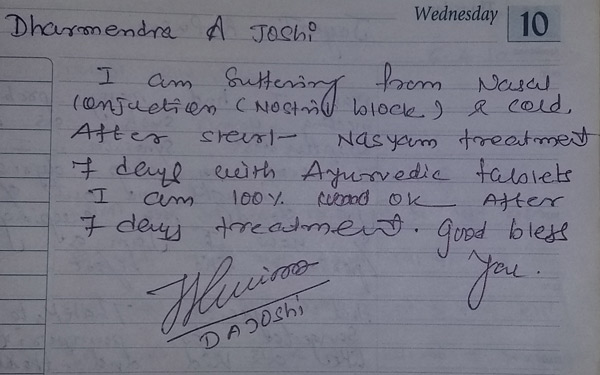 Wednesday 10
Dharmendra A Joshi
I am Suffering from Nasal
Conjuction (Nostril block) & cold.
After start- Nasyam treatment
7 days with Ayurvedic tablets
I am 100% ok After
7 days treatment. Good bless
you.
D A JOSHI